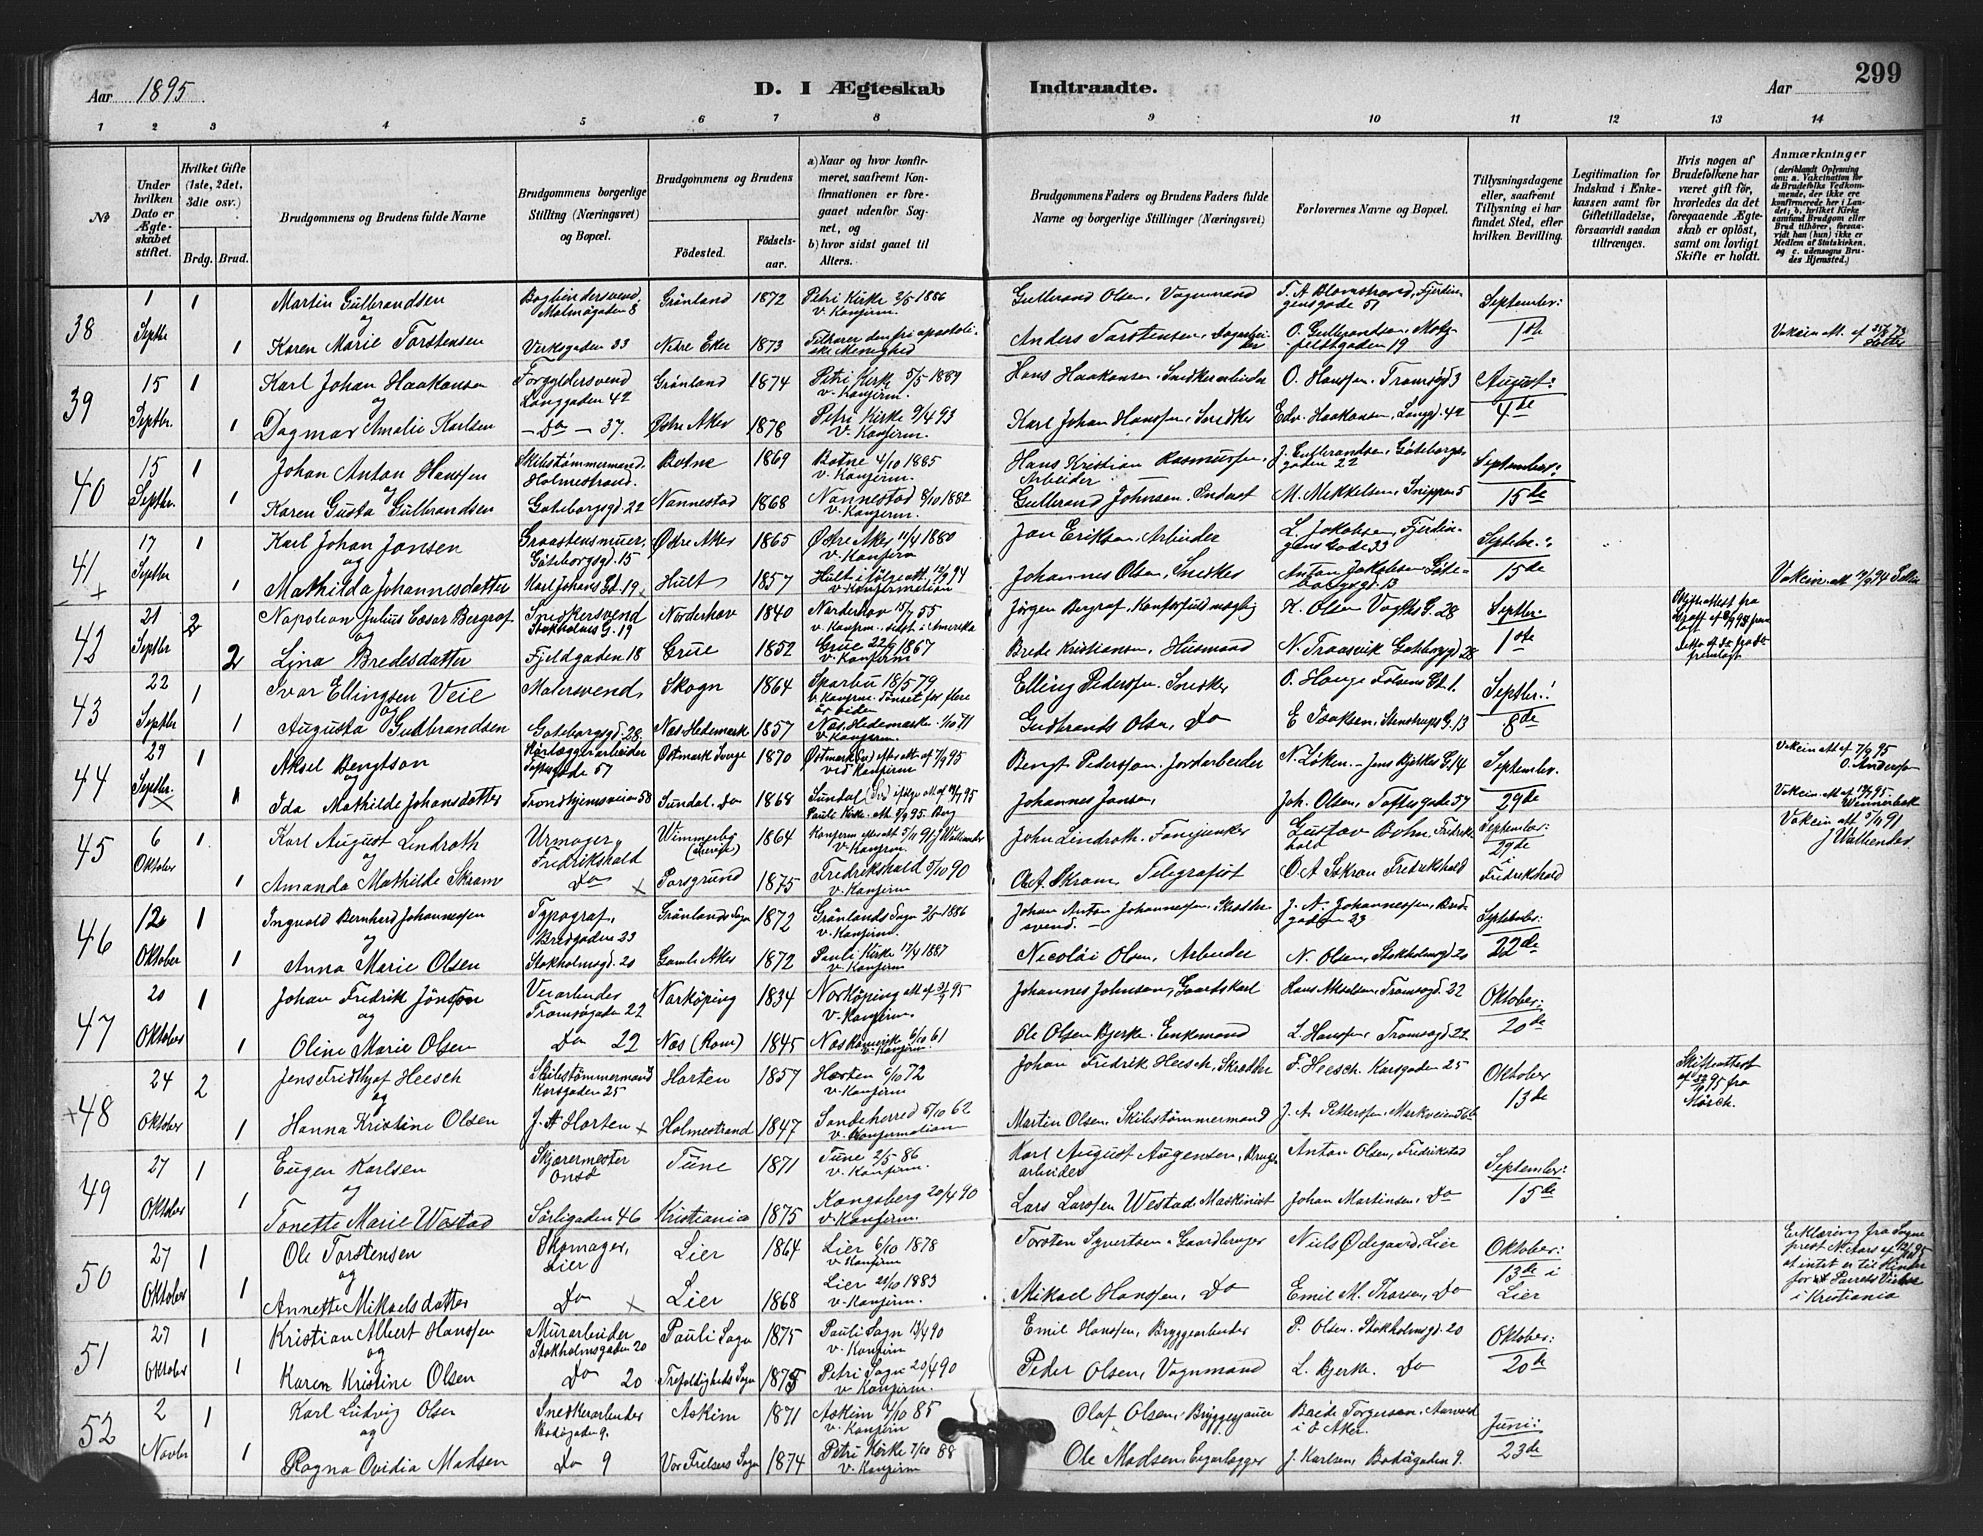 Aar 1895
D. I Ægteskab Indtraadte.
Aar
299
1 2 3 4 5 6 7 8 9 10 11 12 13 14
No
Under hvilken Dato er Ægteskabet stiftet.
Hvilket Gifte (1ste, 2det, 3die osv.)
Brdg. Brud.
Brudgommens og Brudens fulde Navne
Brudgommens borgerlige Stilling (Næringsvei) og Bopæl.
Brudgommens og Brudens
Fødested.
Fødselsaar.
a) Naar og hvor konfirmeret, saafremt Konfirmationen er foregaaet udenfor Sognet, og
b) hvor sidst gaaet til Alters.
Brudgommens Faders og Brudens Faders fulde Navne og borgerlige Stillinger (Næringsvei)
Forlovernes Navne og Bopæl.
Tillysningsdagene eller, saafremt Tillysning ei har fundet Sted, efter hvilken Bevilling.
Legitimation for Indskud i Enkekassen samt for Giftetilladelse, forsaavidt saadan tiltrænges.
Hvis nogen af Brudefolkene har været gift før, hvorledes da det foregaaende Ægteskab er opløst, samt om lovligt Skifte er holdt.
Anmærkninger (deriblandt Oplysning om: a. Vakcination for de Brudefolks Vedkommende, der ikke ere konfirmerede her i Landet; b. hvilket Kirkesamfund Brudgom eller Brud tilhører, forsaavidt han (hun) ikke er Medlem af Statskirken, og c. udensogns Brudes Hjemsted.)
38 1 Septbr 1 Martin Gulbrandsen Bogbindersvend, Malmøgaden 8 Grønland 1872 Petri Kirke 2/5 1886 v. Konfirm. Gulbrand Olsen, Vognmand T. A. Blomstrand, Fjerdingensgade 51 September: 1ste
og
1 Karen Marie Torstensen Verksgaden 33 Nedre Eker 1873 Tilhører den fri apostoliske Menighed Anders Torstensen, O. Gulbrandsen, Motzfeldtsgaden 19
39 15 Septbr. 1 Karl Johan Haakonsen Forgyldersvend Langgaden 42 Grønland 1874 Petri Kirke 5/5 1889 v. Konfirm. Hans Haakonsen, Snedkerarbeider O. Hansen, Tromsøgd 3 August: 4de
og
1 Dagmar Amalie Karlsen - Do - 37. Østre Aker 1878 Petri Kirke 9/4 93 v. Konfirm. Karl Johan Hanssen, Snedker Edv. Haakonsen, Langgd. 42
40 15 Septbr. 1 Johan Anton Hanssen Skibstømmermand. Holmestrand. Botne 1869 Botne 4/10 1885 v. Konfirm. Hans Kristian Rasmussen, Arbeider J. Gulbrandsen, Gøteborgsgaden 22 September: 15de
og
1 Karen Gusta Gulbrandsen Gøteborgsgd. 22 Nannestad 1868 Nannestad 8/10 1882 v. Konfirm. Gulbrand Johnsen, Inderst M. Mikkelsen, Snippen 5
41 17 Septbr 1 Karl Johan Jansen Graastensmurer, Gøteborgsgd. 15 Østre Aker 1865 Østre Aker 11/4 1880 v. Konfirm Jan Eriksen, Arbeider L. Jakobsen, Fjerdingens Gade 33 Septebr.: 15de
og
1 Mathilda Johannesdatter Karl Johans Gd. 19 Hult 1857 Hult ifølge att. 12/9 94 v. Konfirmation Johannes Olsen, Snedker Anton Jakobsen, Gøteborgsgd. 13 Vakcin. att.
42 21 Septbr 2 Napoleon Julius Cæsar Bergraf Snedkersvend Stokholms G. 19 Norderhov 1840 Norderhov 15/7 55 v. Konfirm. sidst i Amerika Jørgen Bergraf, H. Olsen Vogts G. 28 Septbr: 1ste
og
2 Lina Bredesdatter Fjeldgaden 18 Grue 1852 Grue 22/9 1867 v. Konfirm Brede Kristiansen, Husmand N. Traasvik Gøteborgsgd 28
43 22 Septbr 1 Ivar Ellingsen Veie Malersvend, Skogn 1864 Sparbu 18/5 79 v. Konfirm. Tønset for flere år siden Elling Pedersen, Snedker O. Hauge Tolsens Gt 1. Septbr.: 8de
og
1 Augusta Gulbrandsen Gøteborgsgd. 28. Næs Hedemark 1857 Næs. Hedemarke 1/10 71 v. Konfirm. Gudbrands Olsen, Do E Isaksen, Stenstrups G. 13
44 29 Septbr. 1 Aksel Bengtson Rørlæggerarbeider Toftesgade 57 Østmark Sverge 1870 Østmark (Sv) efter att. af 7/9 95 ved Konfirm Bengt Pedersson, Jordarbeider N. Løken - Jens Bjelkes G. 14 September. 29de Vakcin att af 7/9 95 O. Anderson
og
1 Ida Mathilde Johansdatter Trondhjemsveien 58 Sundal. Do 1868 Johannes Jansen, Joh. Olsen, Toftesgade 57
45 6 Oktober 1 Karl August Lindroth Urmager, Fredrikshald Wimmerby (Sverige) 1864 v. Konfirm. John Lindroth, Fanejunker Gustav Bohn, Fredrikshald September: 29de i Fredrikshald Vakcin att. 5/11 91 J Wallender.
og
1 Amanda Mathilde Skram Do Porsgrund 1875 Fredrikshald 5/10 90 v. Konfirm O. A. Skram, Telegrafist O. A Skram Fredrikshald
46 12 Oktober 1 Ingvald Bernhard Johannessen Typograf, Bredgaden 23 Grønlands Sogn 1872 Grønlands Sogn 2/5 1886 v. Konfirm. Johan Anton Johannessen, Skræddersvend. J. A. Johannessen, Bredgaden 23 September: 22de
og
1 Anna Marie Olsen Stokholmsgd. 20 Gamle Aker 1872 Pauli Kirke 17/4 1887 v. Konfirm Nicolai Olsen, Arbeider N. Olsen, Stokholmsgd 20
47 20 Oktober 1 Johan Fredrik Jönsson Veiarbeider Tromsøgaden 22 Norköping 1834 Norköping v. Konfirm. Johannes Johnson, Gaardskarl Hans Akselsen, Tromsøgd. 22 Oktober: 20de
og
1 Oline Marie Olsen Do 22 Næs (Rom) 1845 v. Konfirm. Ole Olsen Bjerke, Enkemand L. Hansen, Tromsøgd 22
48 24 Oktober 2 Jens Fridthjof Heesch Skibstømmermand Korsgaden 25 Horten 1857 Horten 6/10 72 v. Konfirm Johan Fredrik Heesch, Skrædder F. Heesch, Korsgaden 25 Oktober 13de
og
1 Hanna Kristine Olsen J. H. Horten Holmestrand 1847 Sandeherred 5/10 62 v. Konfirmation Martin Olsen, Skibstømmermand J. A. Pettersen, Markveien 56b
49 27 Oktober 1 Eugen Karlsen Skjæremester Onsø Tune 1871 Tune 2/5 86 v. Konfirm. Karl August Augensen, Brugsarbeider Anton Olsen, Fredrikstad September: 15de
og
1 Tonette Marie Westad Sørligaden 46 Kristiania 1875 Kongsberg 20/4 90 v. Konfirm. Lars Larssen Westad, Maskinist Johan Martinsen, Do
50 27 Oktober 1 Ole Torstensen Skomager, Lier Lier 1864 Lier 6/10 1878 v. Konfirm Torsten Syvertsen, Gaardbruger Niels Ødegaard, Lier Oktober: 13de i Lier Erklæring fra Sogneprest N. Aars
og
1 Annette Mikaelsdatter Do Lier 1868 Lier 21/10 1883 v. Konfirm. Mikael Hanssen, Do Emil M. Thorsen, Do i Kristiania
51 27 Oktober 1 Kristian Albert Hanssen Murarbeider Stokholmsgaden 20 Pauli Sogn 1875 Pauli Sogn 13/4 90 v. Konfirm Emil Hanssen, Bryggearbeider P. Olsen. Stokholmsgd. 20 Oktober: 20de
og
1 Karen Kristine Olsen Do 20 Trefoldigheds Sogn 1875 Petri Sogn 20/4 90 v. Konfirm. Peder Olsen, Vognmand L. Bjerke. Do
52 2 Novbr 1 Karl Ludvig Olsen Snedkerarbeider Bodøgaden 9. Askim 1871 Askim 4/10 85 v. Konfirm Olaf Olsen, Torgersen, i Ø Aker. Juni: 23de
og
1 Ragna Ovidia Madsen Do 9 Vor Frelsers Sogn 1874 Petri Kirke 7/10 88 v. Konfirm Ole Madsen, J. Karlsen, Bodøgaden 9.